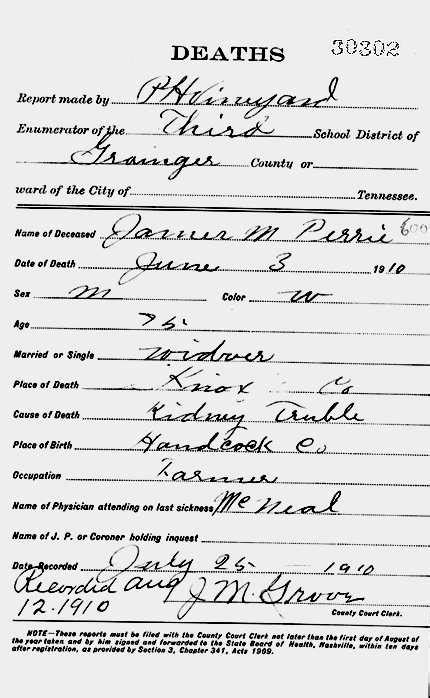 DEATHS
30302
Report made by P H Vineyard
Enumerator of the Third School District of
Grainger County or
ward of the City of Tennessee.
Name of Deceased James M Perrie 600
Date of Death June 3 1910
Sex m Color w
Age 75
Married or Single widower
Place of Death Knox Co
Cause of Death Kidney Truble
Place of Birth Handcock Co
Occupation Farmer
Name of Physician attending on last sickness McNeal
Name of J. P. or Coroner holding inquest
Date Recorded July 25 1910
Recorded aug J M.
12.1910 County Court Clerk.
NOTE—These reports must be filed with the County Court Clerk not later than the first day of August of
the year taken and by him signed and forwarded to the State Board of Health, Nashville, within ten days
after registration, as provided by Section 3, Chapter 341, Acts 1909.